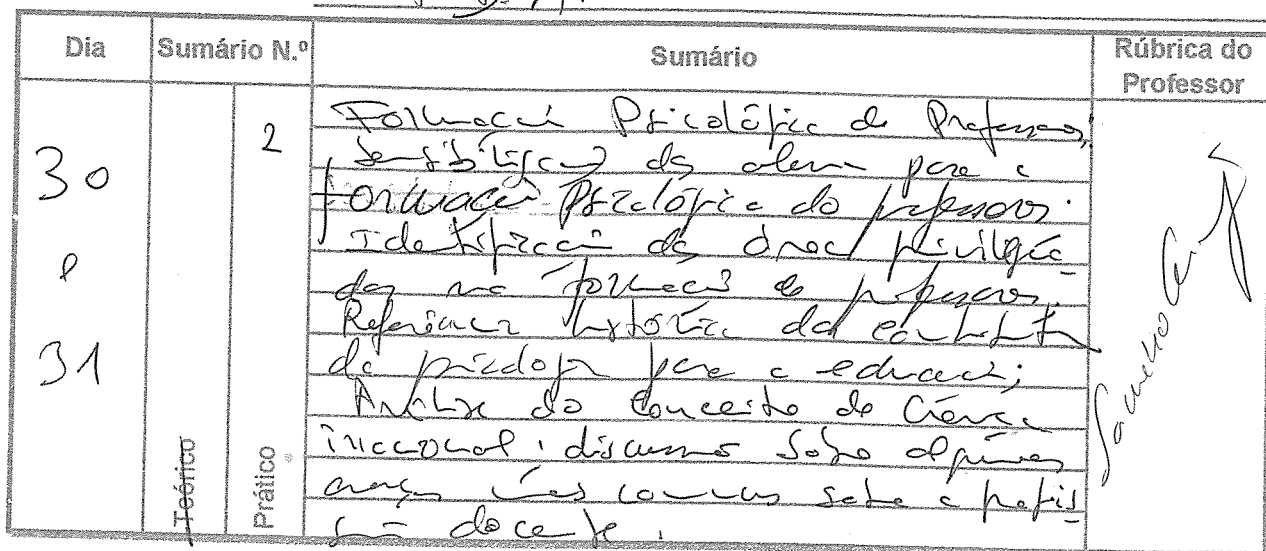 Dia
Sumário N.º
Sumário
Rúbrica do
Professor
30
e
31
2
Teórico
Prático
Formação Psicológica de Professores,
Sensibilização dos alunos para a
formação Psicológica do professor.
Identificação das áreas privilegia-
das na formação de professores.
Referência histórica da
da psicologia para a educação;
Análise do conceito de Crença
irracional; discussão sobre algumas
crenças comuns sobre a profis-
são docente.